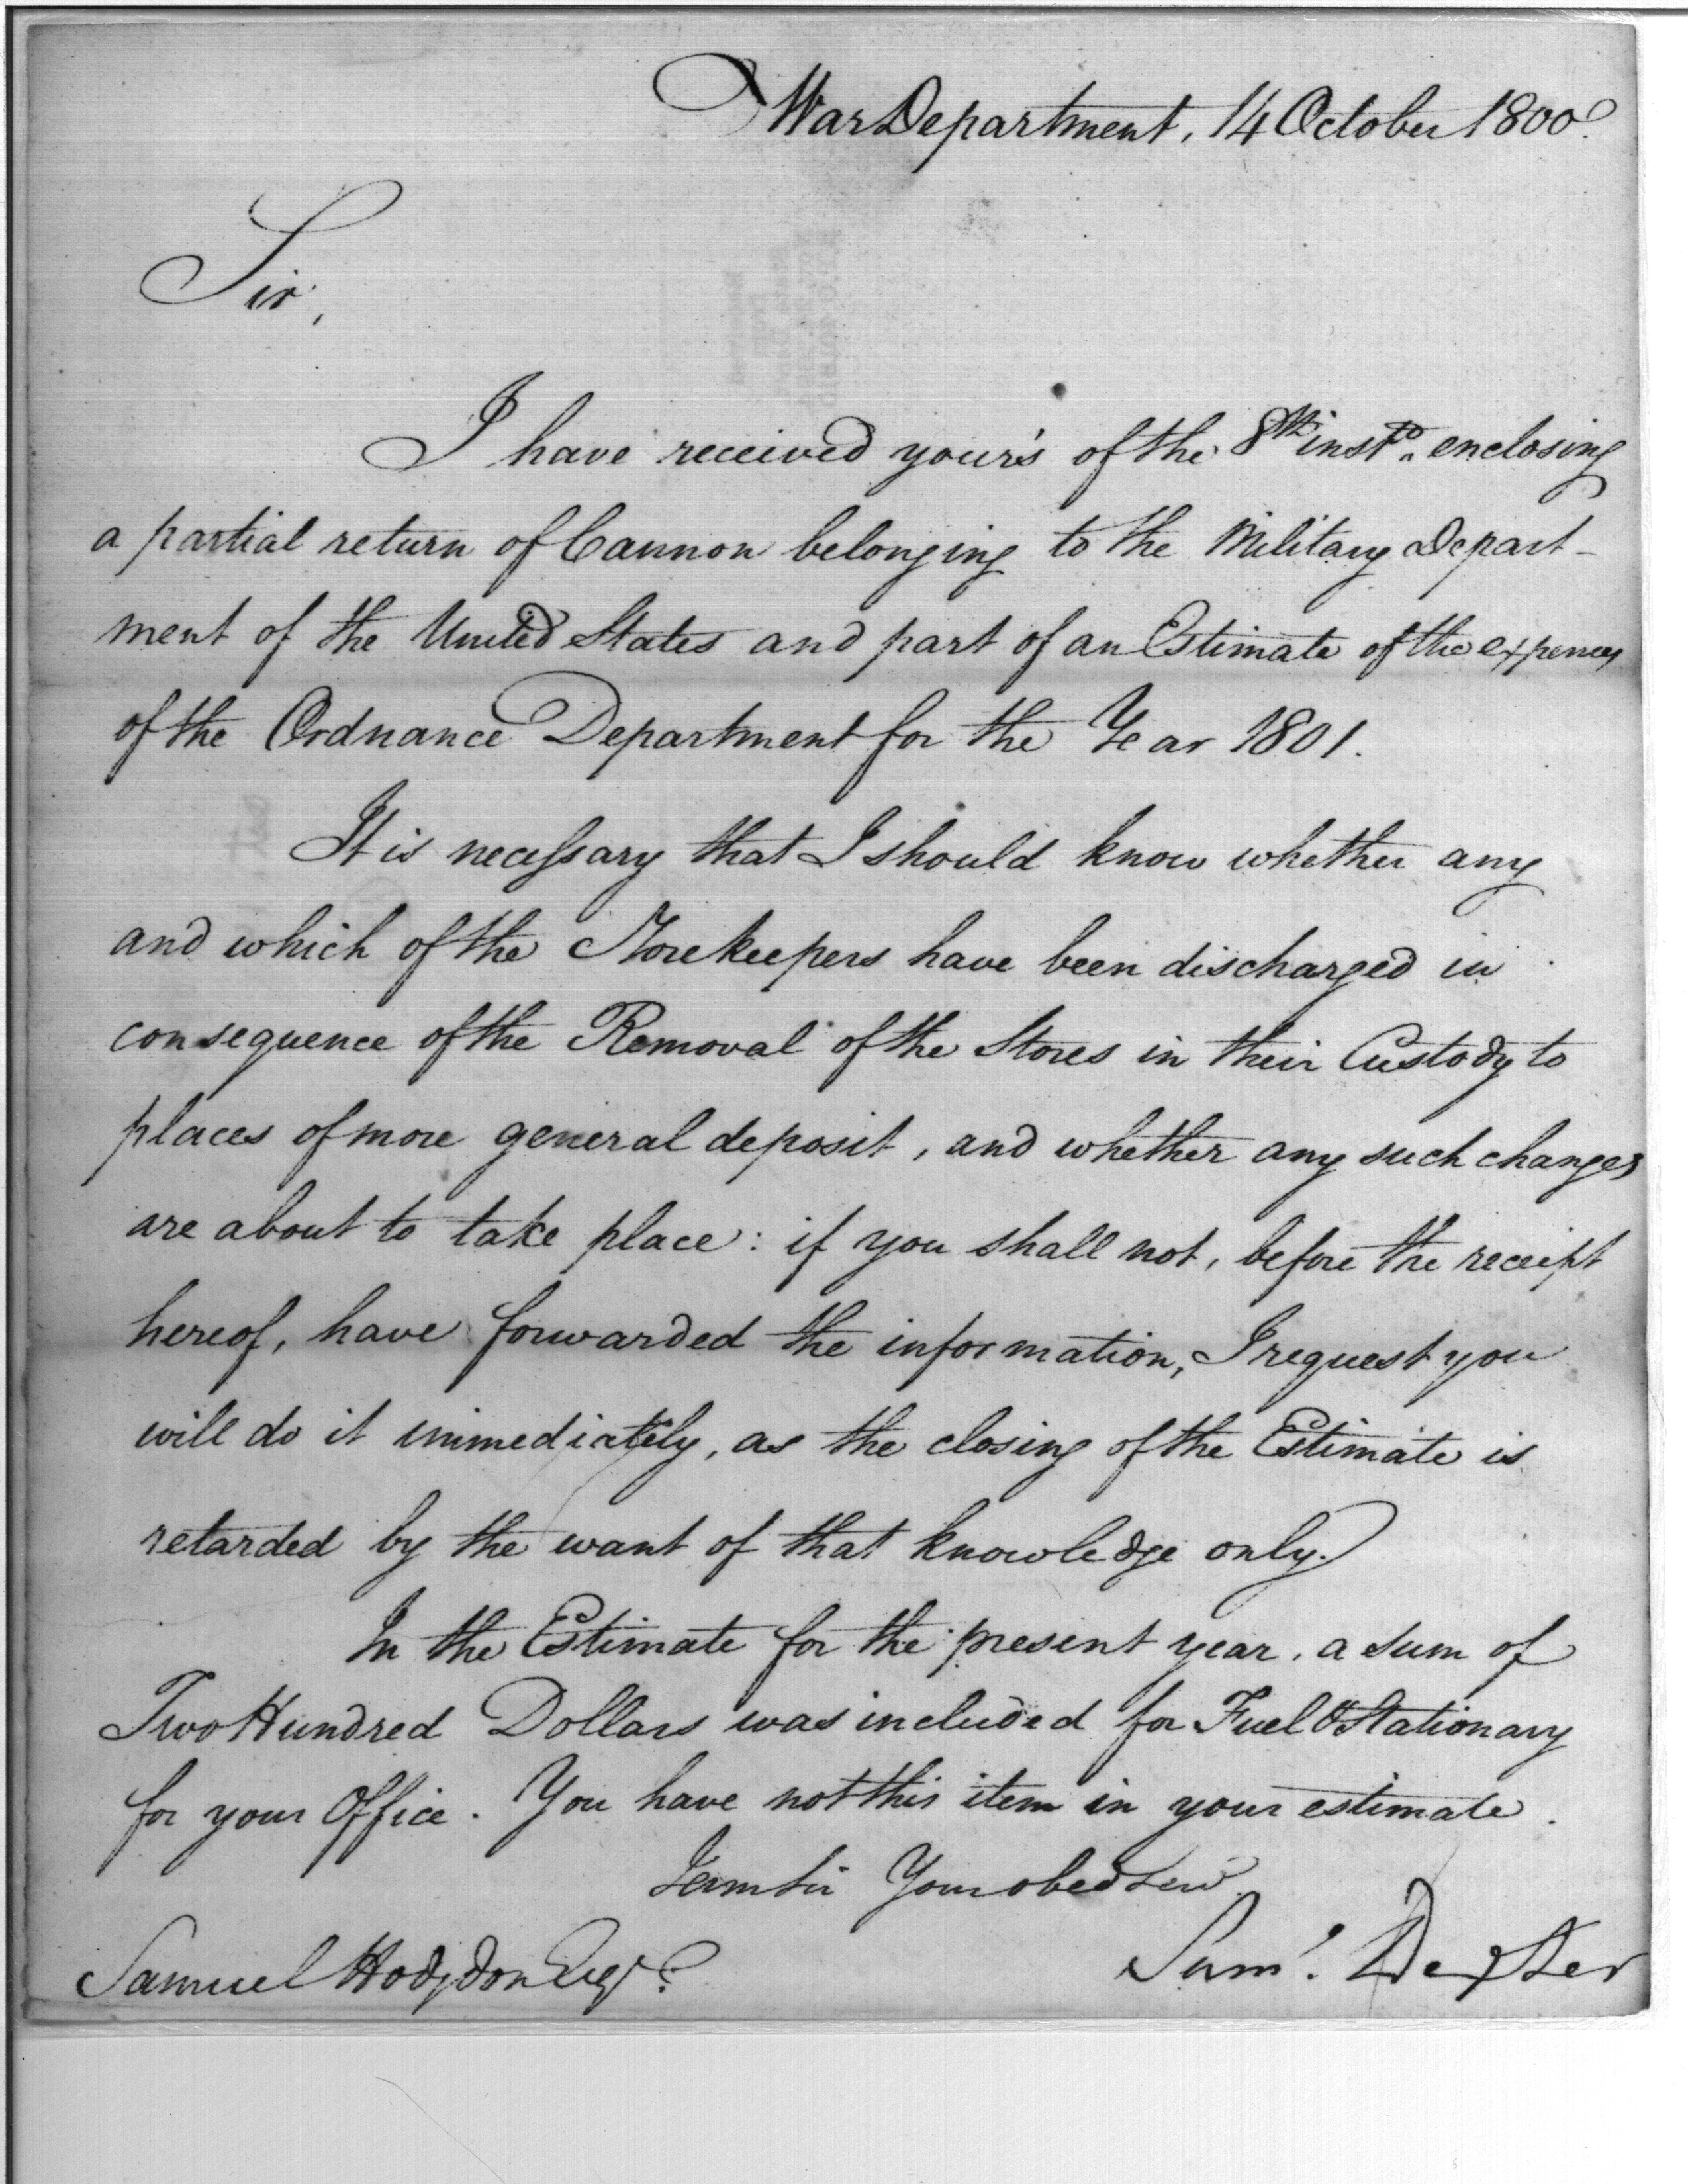 War Department, 14 October 1800.
Sir,
I have received your's of the 8th inst. enclosing
a partial return of Cannon belonging to the Military Depart-
ment of the United States and part of an Estimate of the expences
of the Ordnance Department for the Year 1801.
It is necessary that I should know whether any
and which of the Storekeepers have been discharged in
consequence of the Removal of the Stores in their Custody to
places of more general deposit, and whether any such changes
are about to take place: if you shall not, before the receipt
hereof, have forwarded the information, I request you
will do it immediately, as the closing of the Estimate is
retarded by the want of that knowledge only.
In the Estimate for the present year, a sum of
Two Hundred Dollars was included for Fuel & Stationary
for your Office. You have not this item in your estimate.
I am Sir Your obed Serv
Saml. Dexter
Samuel Hodgdon Esqr.